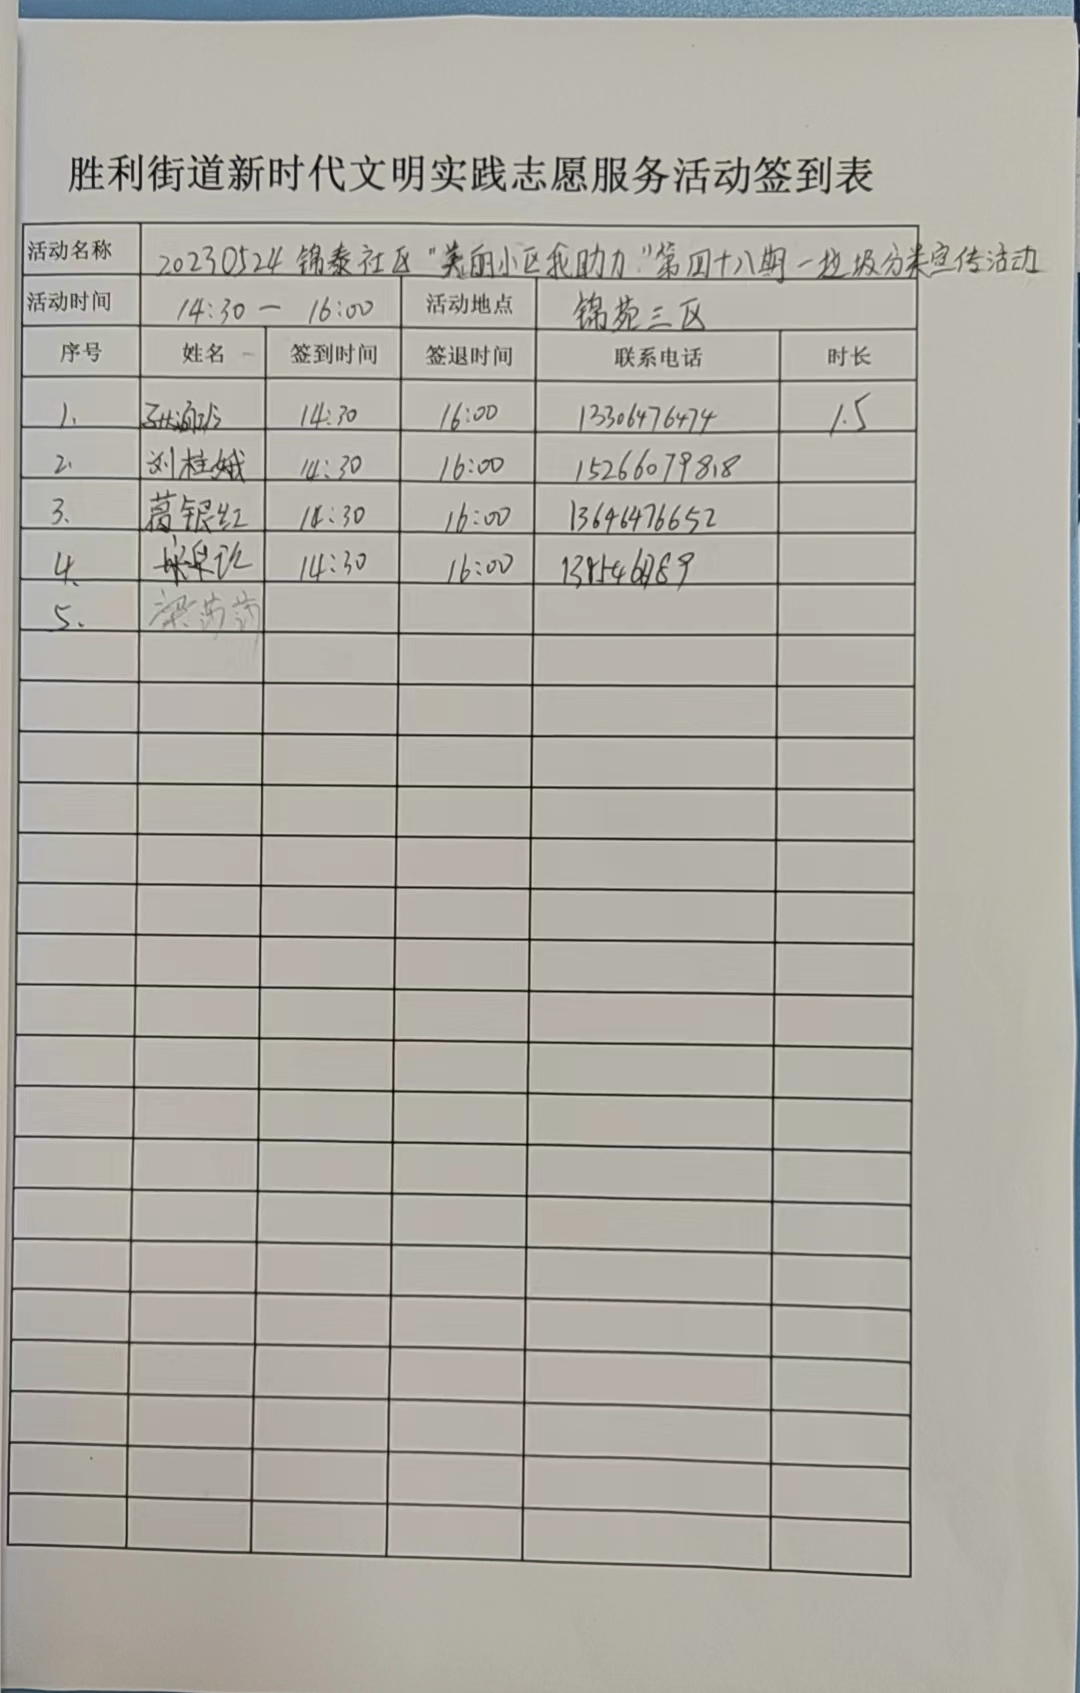 胜利街道新时代文明实践志愿服务活动签到表
活动名称 20230524锦泰社区"美丽小区我助力"第四十八期-垃圾分类宣传活动
活动时间 14:30 — 16:00 活动地点 锦苑三区
序号 姓名 签到时间 签退时间 联系电话 时长
1. 14:30 16:00 13306476474 1.5
2. 刘桂娥 14:30 16:00 15266079818
3. 葛银红 14:30 16:00 13646476652
4. 14:30 16:00
5. 梁芮芮